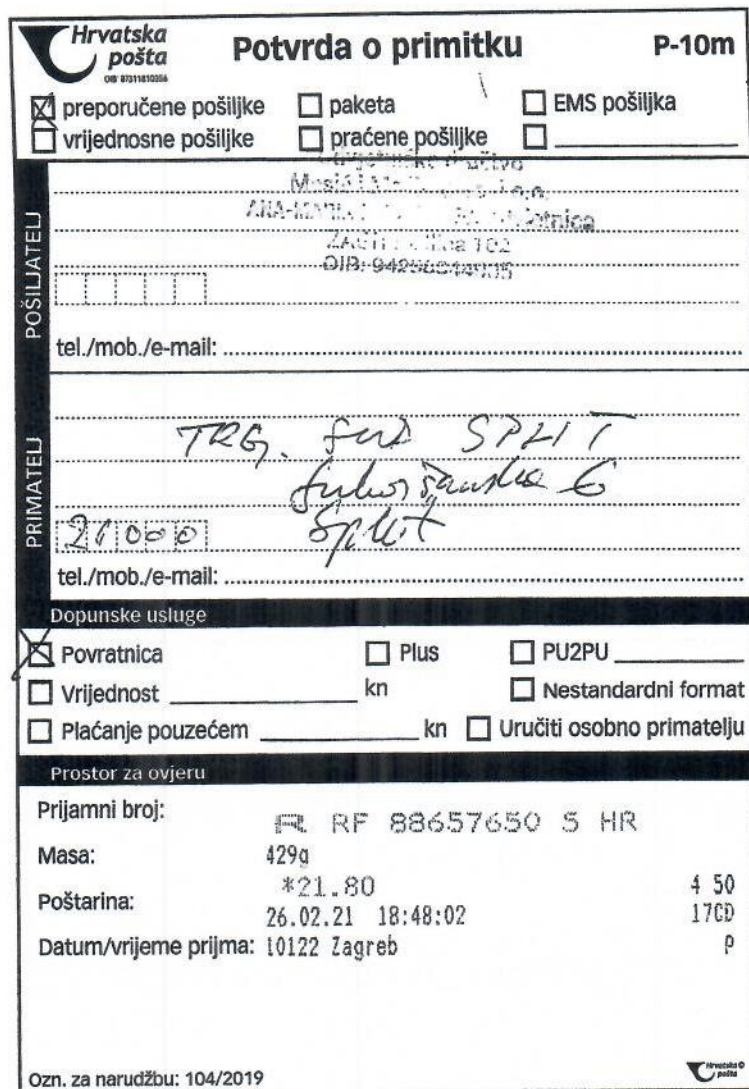 Hrvatska pošta
OIB 87311810356
Potvrda o primitku
P-10m
preporučene pošiljke paketa EMS pošiljka
vrijednosne pošiljke praćene pošiljke
ZAGREB
OIB:
POŠILJATELJ
tel./mob./e-mail:
PRIMATELJ
TRG. SUD SPLIT
Sukoišanska 6
21000 Split
tel./mob./e-mail:
Dopunske usluge
Povratnica Plus PU2PU
Vrijednost kn Nestandardni format
Plaćanje pouzećem kn Uručiti osobno primatelju
Prostor za ovjeru
Prijamni broj: R RF 88657650 5 HR
Masa: 429g
Poštarina: *21.80 4 50
26.02.21 18:48:02 17CD
Datum/vrijeme prijma: 10122 Zagreb P
Ozn. za narudžbu: 104/2019
Hrvatska pošta